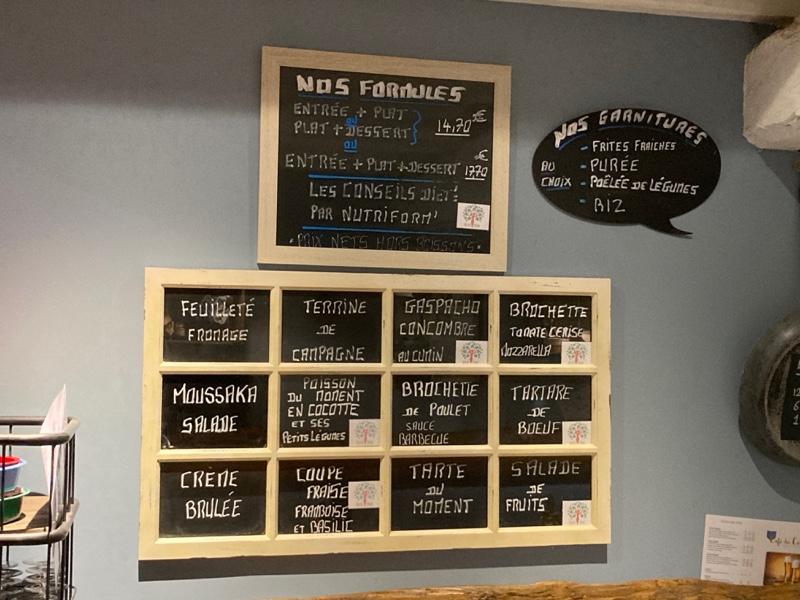 NOS FORMULES
ENTRÉE + PLAT
ou
PLAT + DESSERT
14,70€
ou
ENTRÉE + PLAT + DESSERT 17,70€
LES CONSEILS DIET!
PAR NUTRIFORM'
• PRIX NETS HORS BOISSONS •
NOS GARNITURES
- FRITES FRAICHES
AU CHOIX
- PURÉE
- POÊLÉE DE LÉGUMES
- RIZ
FEUILLETÉ
FROMAGE
TERRINE
DE
CAMPAGNE
GASPACHO
CONCOMBRE
AU CUMIN
BROCHETTE
TOMATE CERISE
MOZZARELLA
MOUSSAKA
SALADE
POISSON
DU MOMENT
EN COCOTTE
ET SES
PETITS LÉGUMES
BROCHETTE
DE POULET
SAUCE
BARBECUE
TARTARE
DE
BOEUF
CRÈME
BRULÉE
COUPE
FRAISE
FRAMBOISE
ET BASILIC
TARTE
DU
MOMENT
SALADE
DE
FRUITS